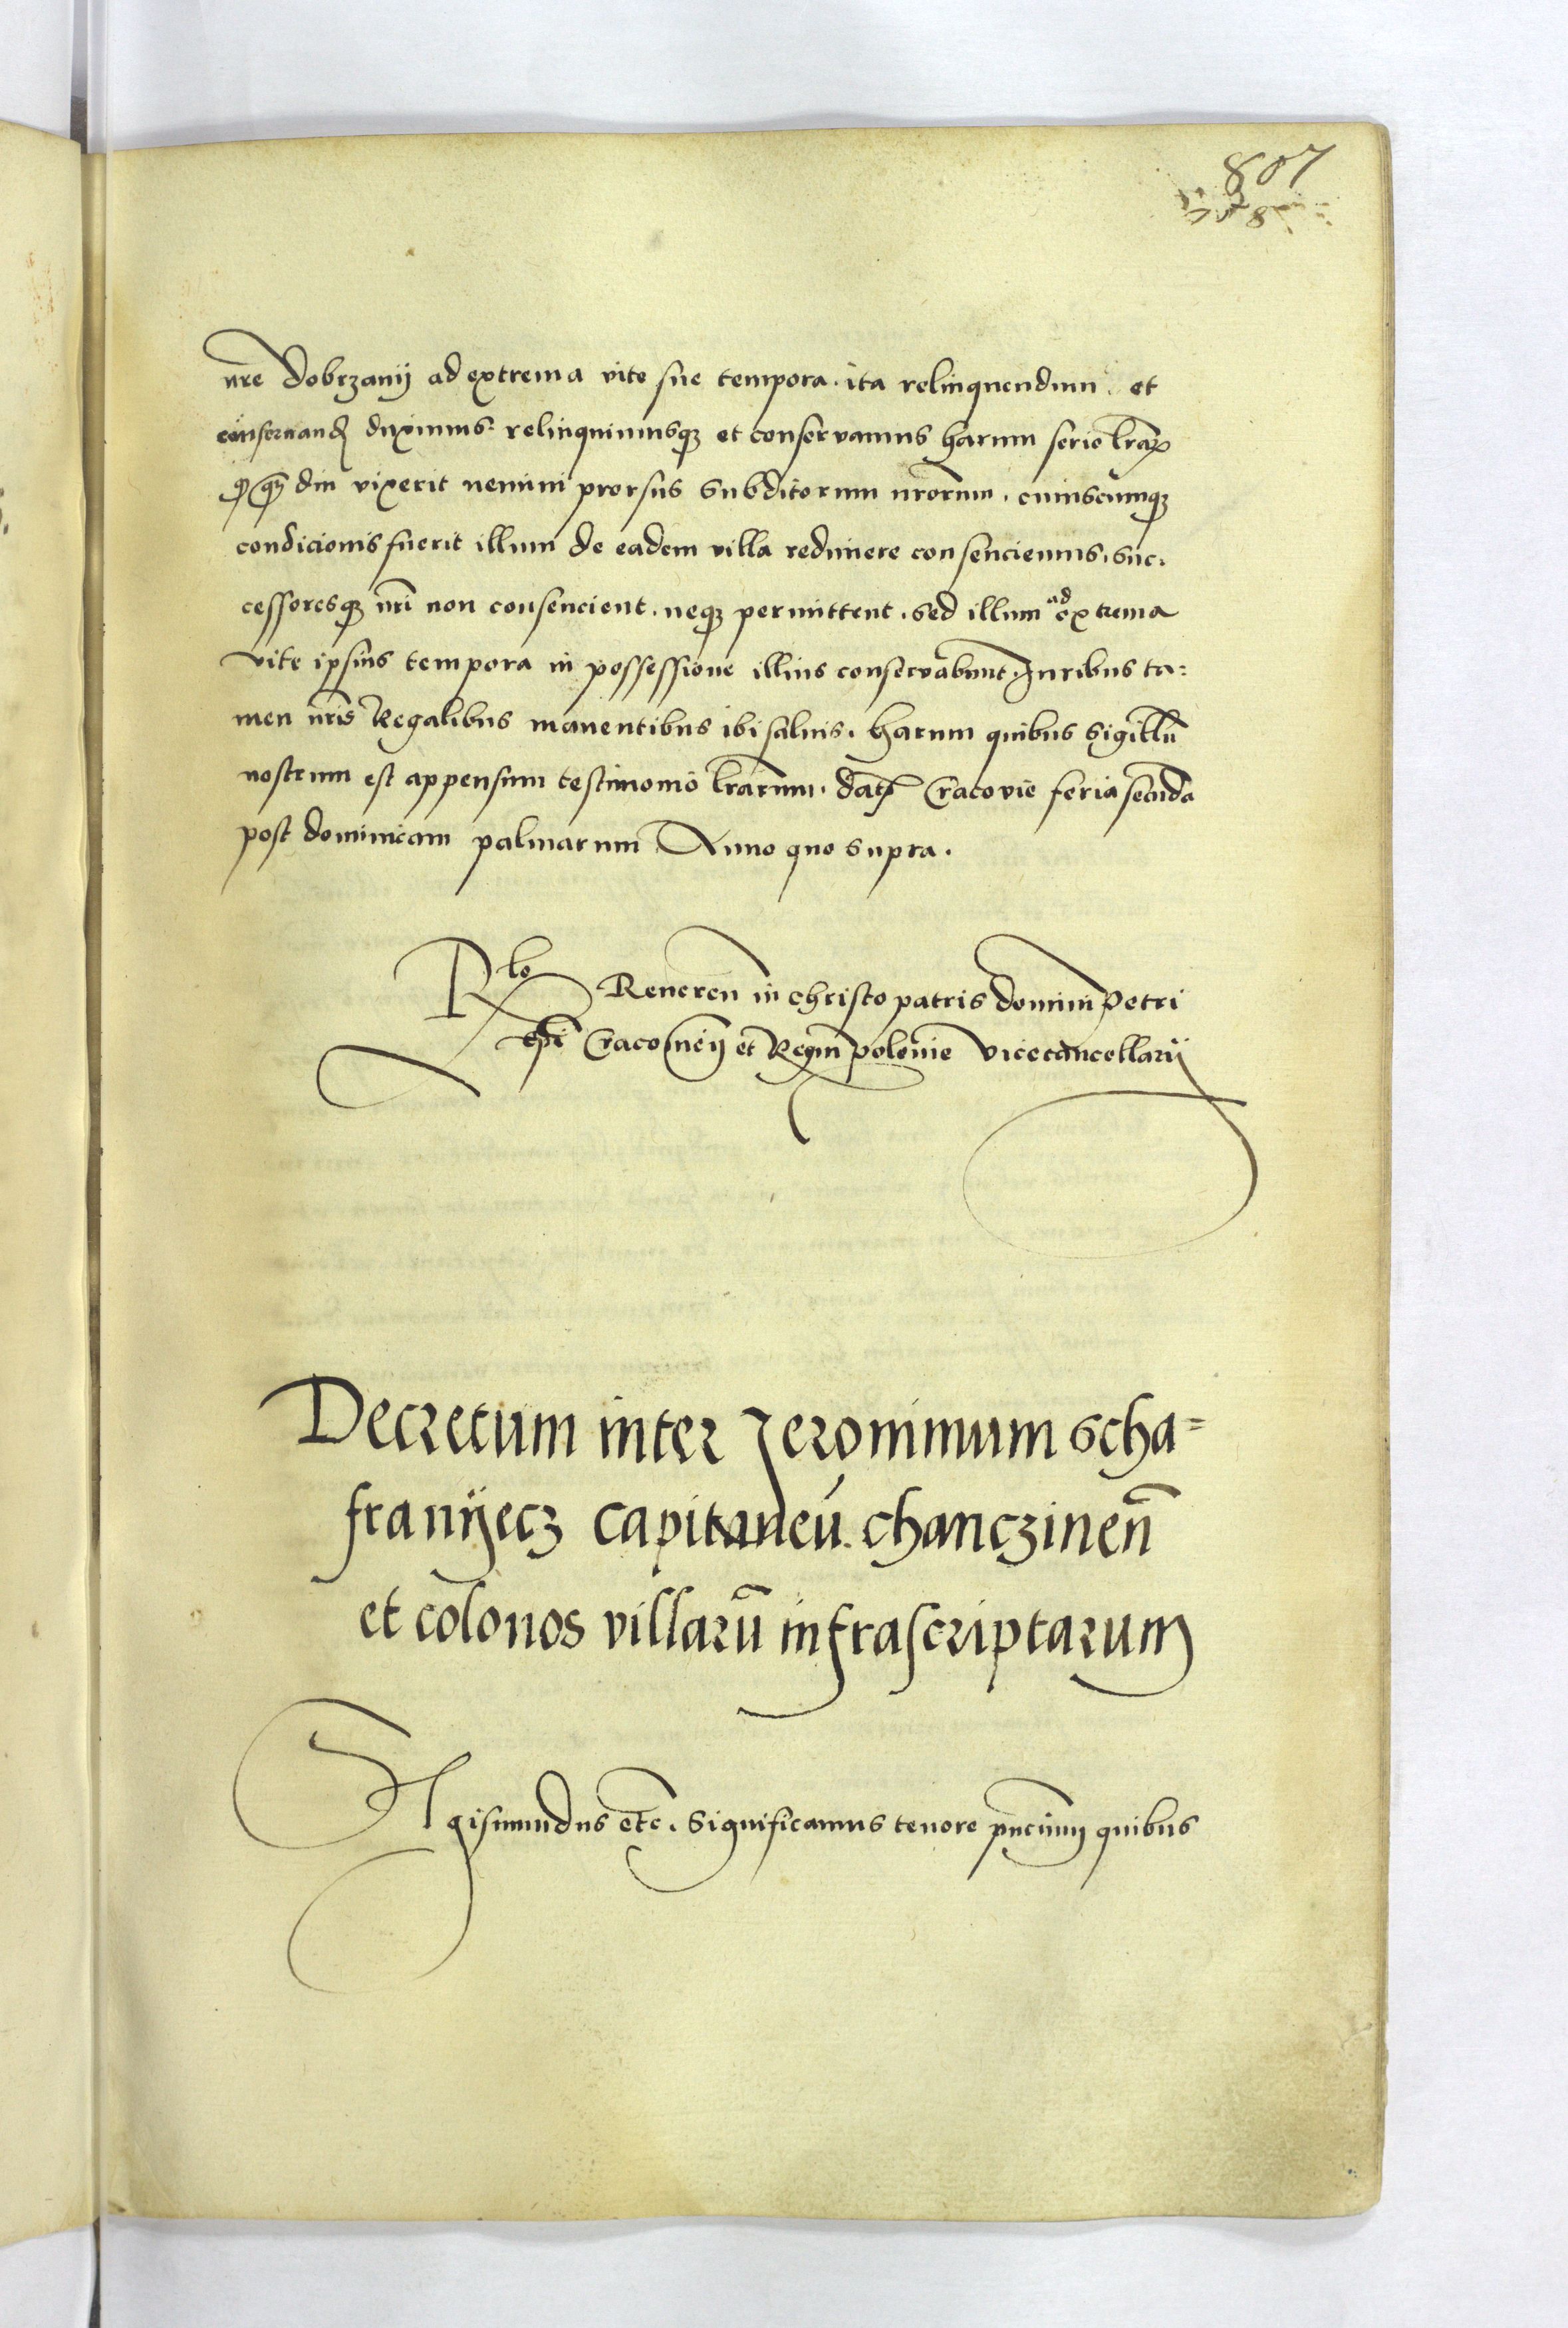 807
nr̃e dobrzanij ad extrema vite sue tempora. ita relinquendum. et
conseruand duximus. relinquimusq₃ et conservamus harum serie lr̃aꝝ
diu vixerit nemini prorsus Subditorum nr̃orum. cuiuscumq₃
condicionis fuerit illum de eadem villa redimere consenciemus. Suc.
cessoresq₃ nr̃i non consencient. neq₃ permittent. Sed illum ad extrema
vite ipsius tempora in possessione illius conservabunt. Juribus ta:
men nr̃is Regalibus manentibus ibi saluis. Harum quibus Sigillũ
nostrum est appensum testimonio lr̃arum. dat Cracovie feria secũda
post dominicam palmarum Anno quo supra.
Rlo Reveren̄ in christo patris domini Petri
ep̃i Cracovien̄ et Regni polonie Vicecancellarij
Decretum inter Jeronimum scha=
franÿecz capitaneũ. chancżinen̄
et colonos villarũ infrascriptarum
Sigismundus etc. Significamus tenore pñcium quibus